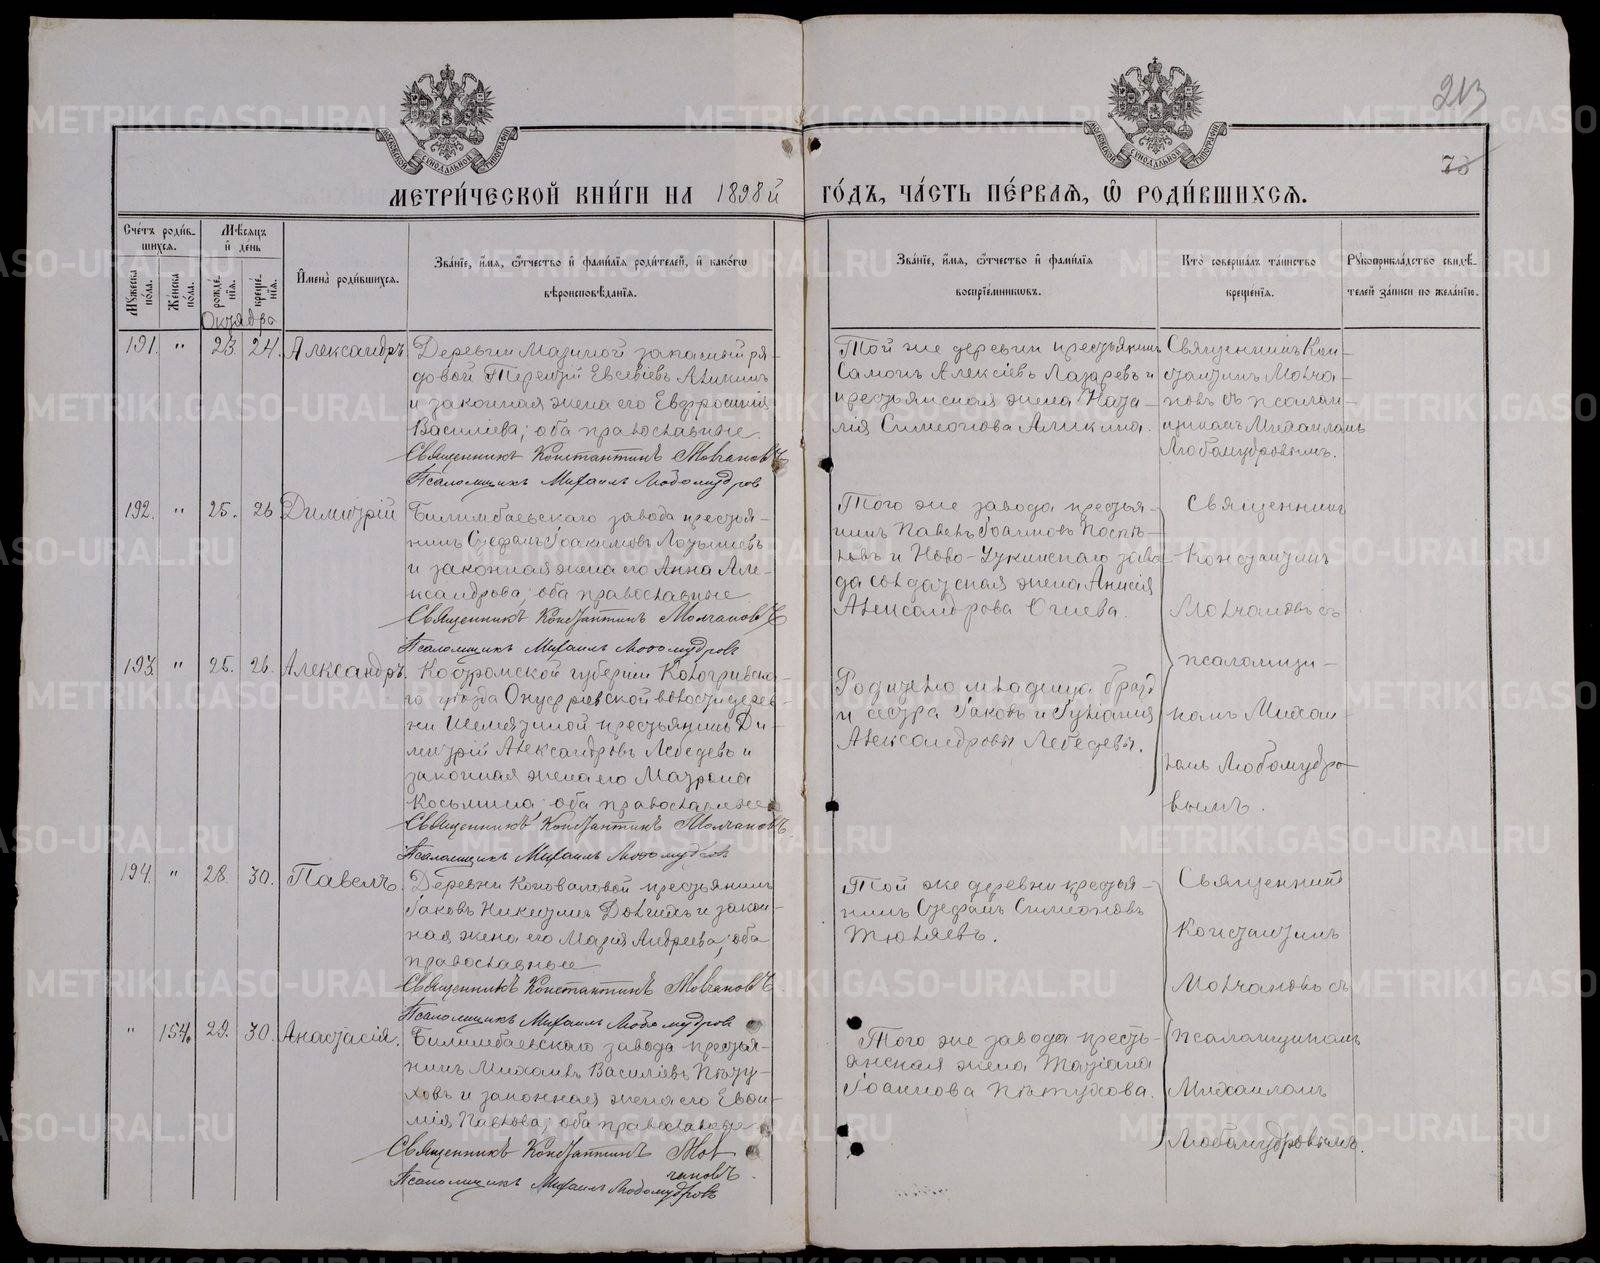 213
73
МЕТРИ́ЧЕСКОЙ КНИ́ГИ НА 1898й ГО́ДЪ, ЧА́СТЬ ПЕ́РВАѦ, Ѽ РОДИ́ВШИХСѦ.
Сче́тъ роди́в-
шихсѧ.
Му́жеска по́ла.
Же́нска по́ла.
Мѣ́сѧцъ
и҆ де́нь
рожде́-
нїѧ.
креще́-
нїѧ.
И҆мена̀ роди́вшихсѧ.
Зва́нїе, и҆́мѧ, ѻ҆́тчество и҆ фами́лїѧ роди́телей, и҆ како́гѡ
вѣроисповѣ́данїѧ.
Зва́нїе, и҆́мѧ, ѻ҆́тчество и҆ фами́лїѧ
воспрїе́мниковъ.
Кто̀ соверша́лъ та́инство
креще́нїѧ.
Рꙋкоприкла́дство свидѣ́-
телей за́писи по жела́нїю.
Октября
191. " 23. 24. Александръ.
Деревни Мазиной запасный ря-
довой Терентій Евсевіевъ Аликинъ
и законная жена его Евфросинія
Василіева; оба православные.
Священникъ Константинъ Молчановъ
Псаломщикъ Михаилъ Любомудров
Той же деревни крестьянинъ
Самсонъ Алексіевъ Лазаревъ и
крестьянская жена Ната-
лія Симеонова Аликина.
Священникъ Кон-
стантинъ Молча-
новъ съ псалом-
щикомъ Михаиломъ
Любомудровымъ.
192. " 25. 26 Димитрій
Билимбаевскаго завода крестья-
нинъ Стефанъ Іоакимовъ
и законная жена его Анна Але-
ксандрова; оба православные
Священникъ Константинъ Молчановъ
Псаломщикъ Михаилъ Любомудровъ
Того же завода крестья-
нинъ Павелъ Іоанновъ Поспѣ-
ловъ и Ново-Уткинскаго заво-
да солдатская жена Анисія
Александрова
Священникъ
Константинъ
Молчановъ съ
псаломщи-
комъ Михаи-
ломъ Любомудро-
вымъ.
193. " 25. 26. Александръ.
Костромской губерніи Кологривска-
го уѣзда волости дерев-
ни крестьянинъ Ди-
митрій Александровъ Лебедевъ и
законная жена его Матрона
Косьмина; оба православные
Священникъ Константинъ Молчановъ
Псаломщикъ Михаилъ Любомудровъ
Родителю младенца братъ
и сестра Іаковъ и Іуліанія
Александровы Лебедевы.
194. " 28. 30. Павелъ.
Деревни Коноваловой крестьянинъ
Іаковъ Никитинъ и закон-
ная жена его Марія Андреева; оба
православные
Священникъ Константинъ Молчановъ
Псаломщикъ Михаилъ Любомудров
Той же деревни крестья-
нинъ Стефанъ Симеоновъ
Тюляевъ.
Священникъ
Константинъ
Молчановъ съ
псаломщикомъ
Михаиломъ
Любомудровымъ.
" 154. 29. 30. Анастасія.
Билимбаевскаго завода крестья-
нинъ Михаилъ Василіевъ Пѣту-
ховъ и законная жена его Евѳи-
мія Павлова; оба православные
Священникъ Константинъ Мол
чановъ.
Псаломщикъ Михаилъ Любомудровъ
Того же завода кресть-
янская жена Татіана
Іоаннова Пѣтухова.